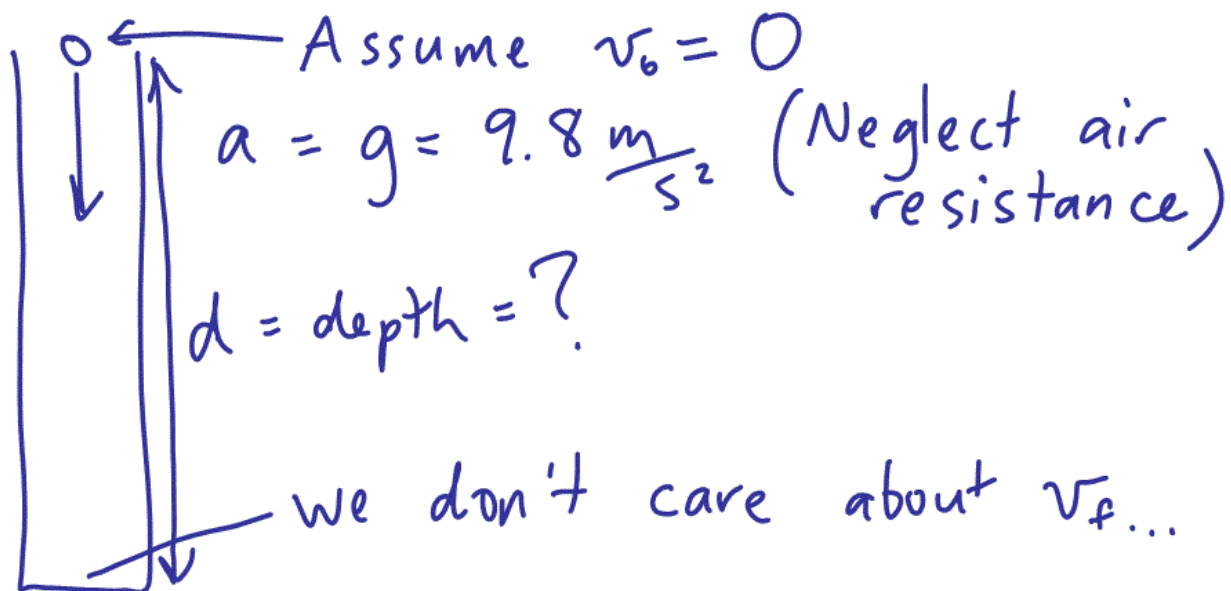 Assume v₀ = 0
a = g = 9.8 m/s² (Neglect air
resistance)
d = depth = ?
we don't care about v_f...